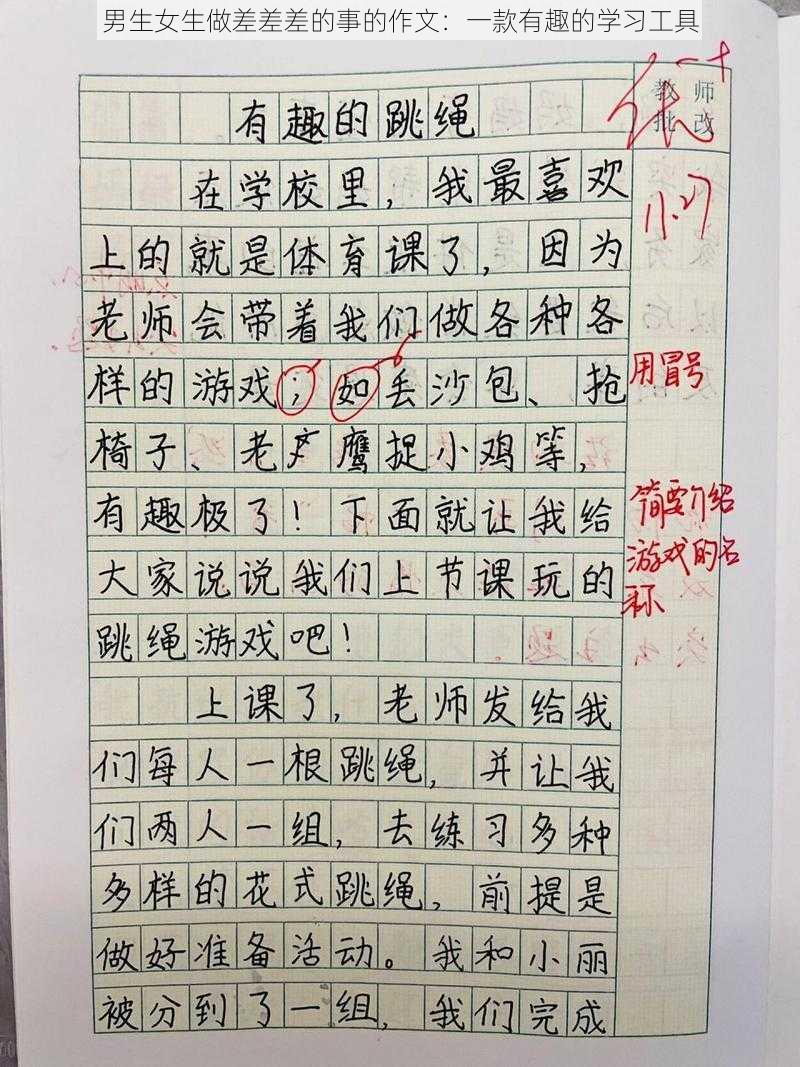 男生女生做差差差的事的作文：一款有趣的学习工具
教师
批改
有趣的跳绳
在学校里，我最喜欢
上的就是体育课了，因为
老师会带着我们做各种各
样的游戏；如丢沙包、抢
椅子、老鹰捉小鸡等，
有趣极了！下面就让我给
大家说说我们上节课玩的
跳绳游戏吧！
上课了，老师发给我
们每人一根跳绳，并让我
们两人一组，去练习多种
多样的花式跳绳，前提是
做好准备活动。我和小丽
被分到了一组，我们完成
11.27
用冒号
简要介绍
游戏的名
称